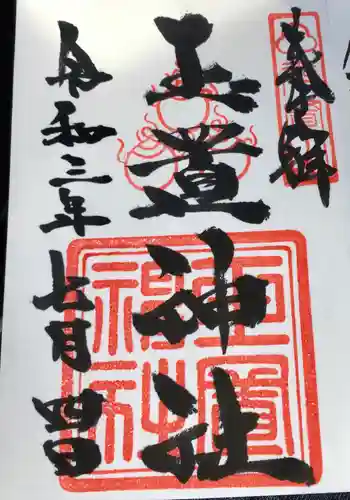 奉拝
玉置神社
令和三年七月四日
玉置
神社